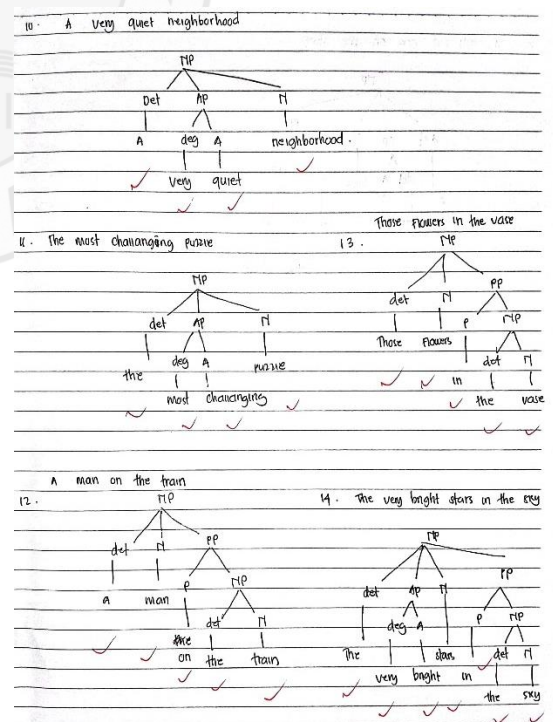 10. A very quiet neighborhood
NP
Det AP N
A deg A neighborhood.
very quiet
11. The most challanging puzzle
NP
det AP N
the deg A puzzle
most challanging
Those Flowers in the vase
13.
NP
det N PP
Those Flowers P NP
in det N
the vase
A man on the train
12.
NP
det N PP
A man P NP
det N
on the train
14. The very bright stars in the sky
NP
det AP N PP
deg A P NP
The stars det N
very bright in
the sky